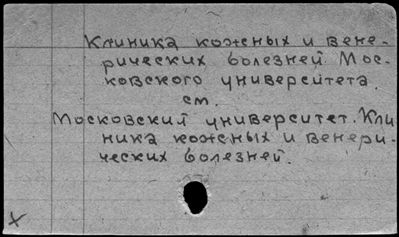 Клиника кожных и вене-
рических болезней Мос-
ковского университета.
см.
Московский университет. Кли
ника кожных и венери-
ческих болезней.